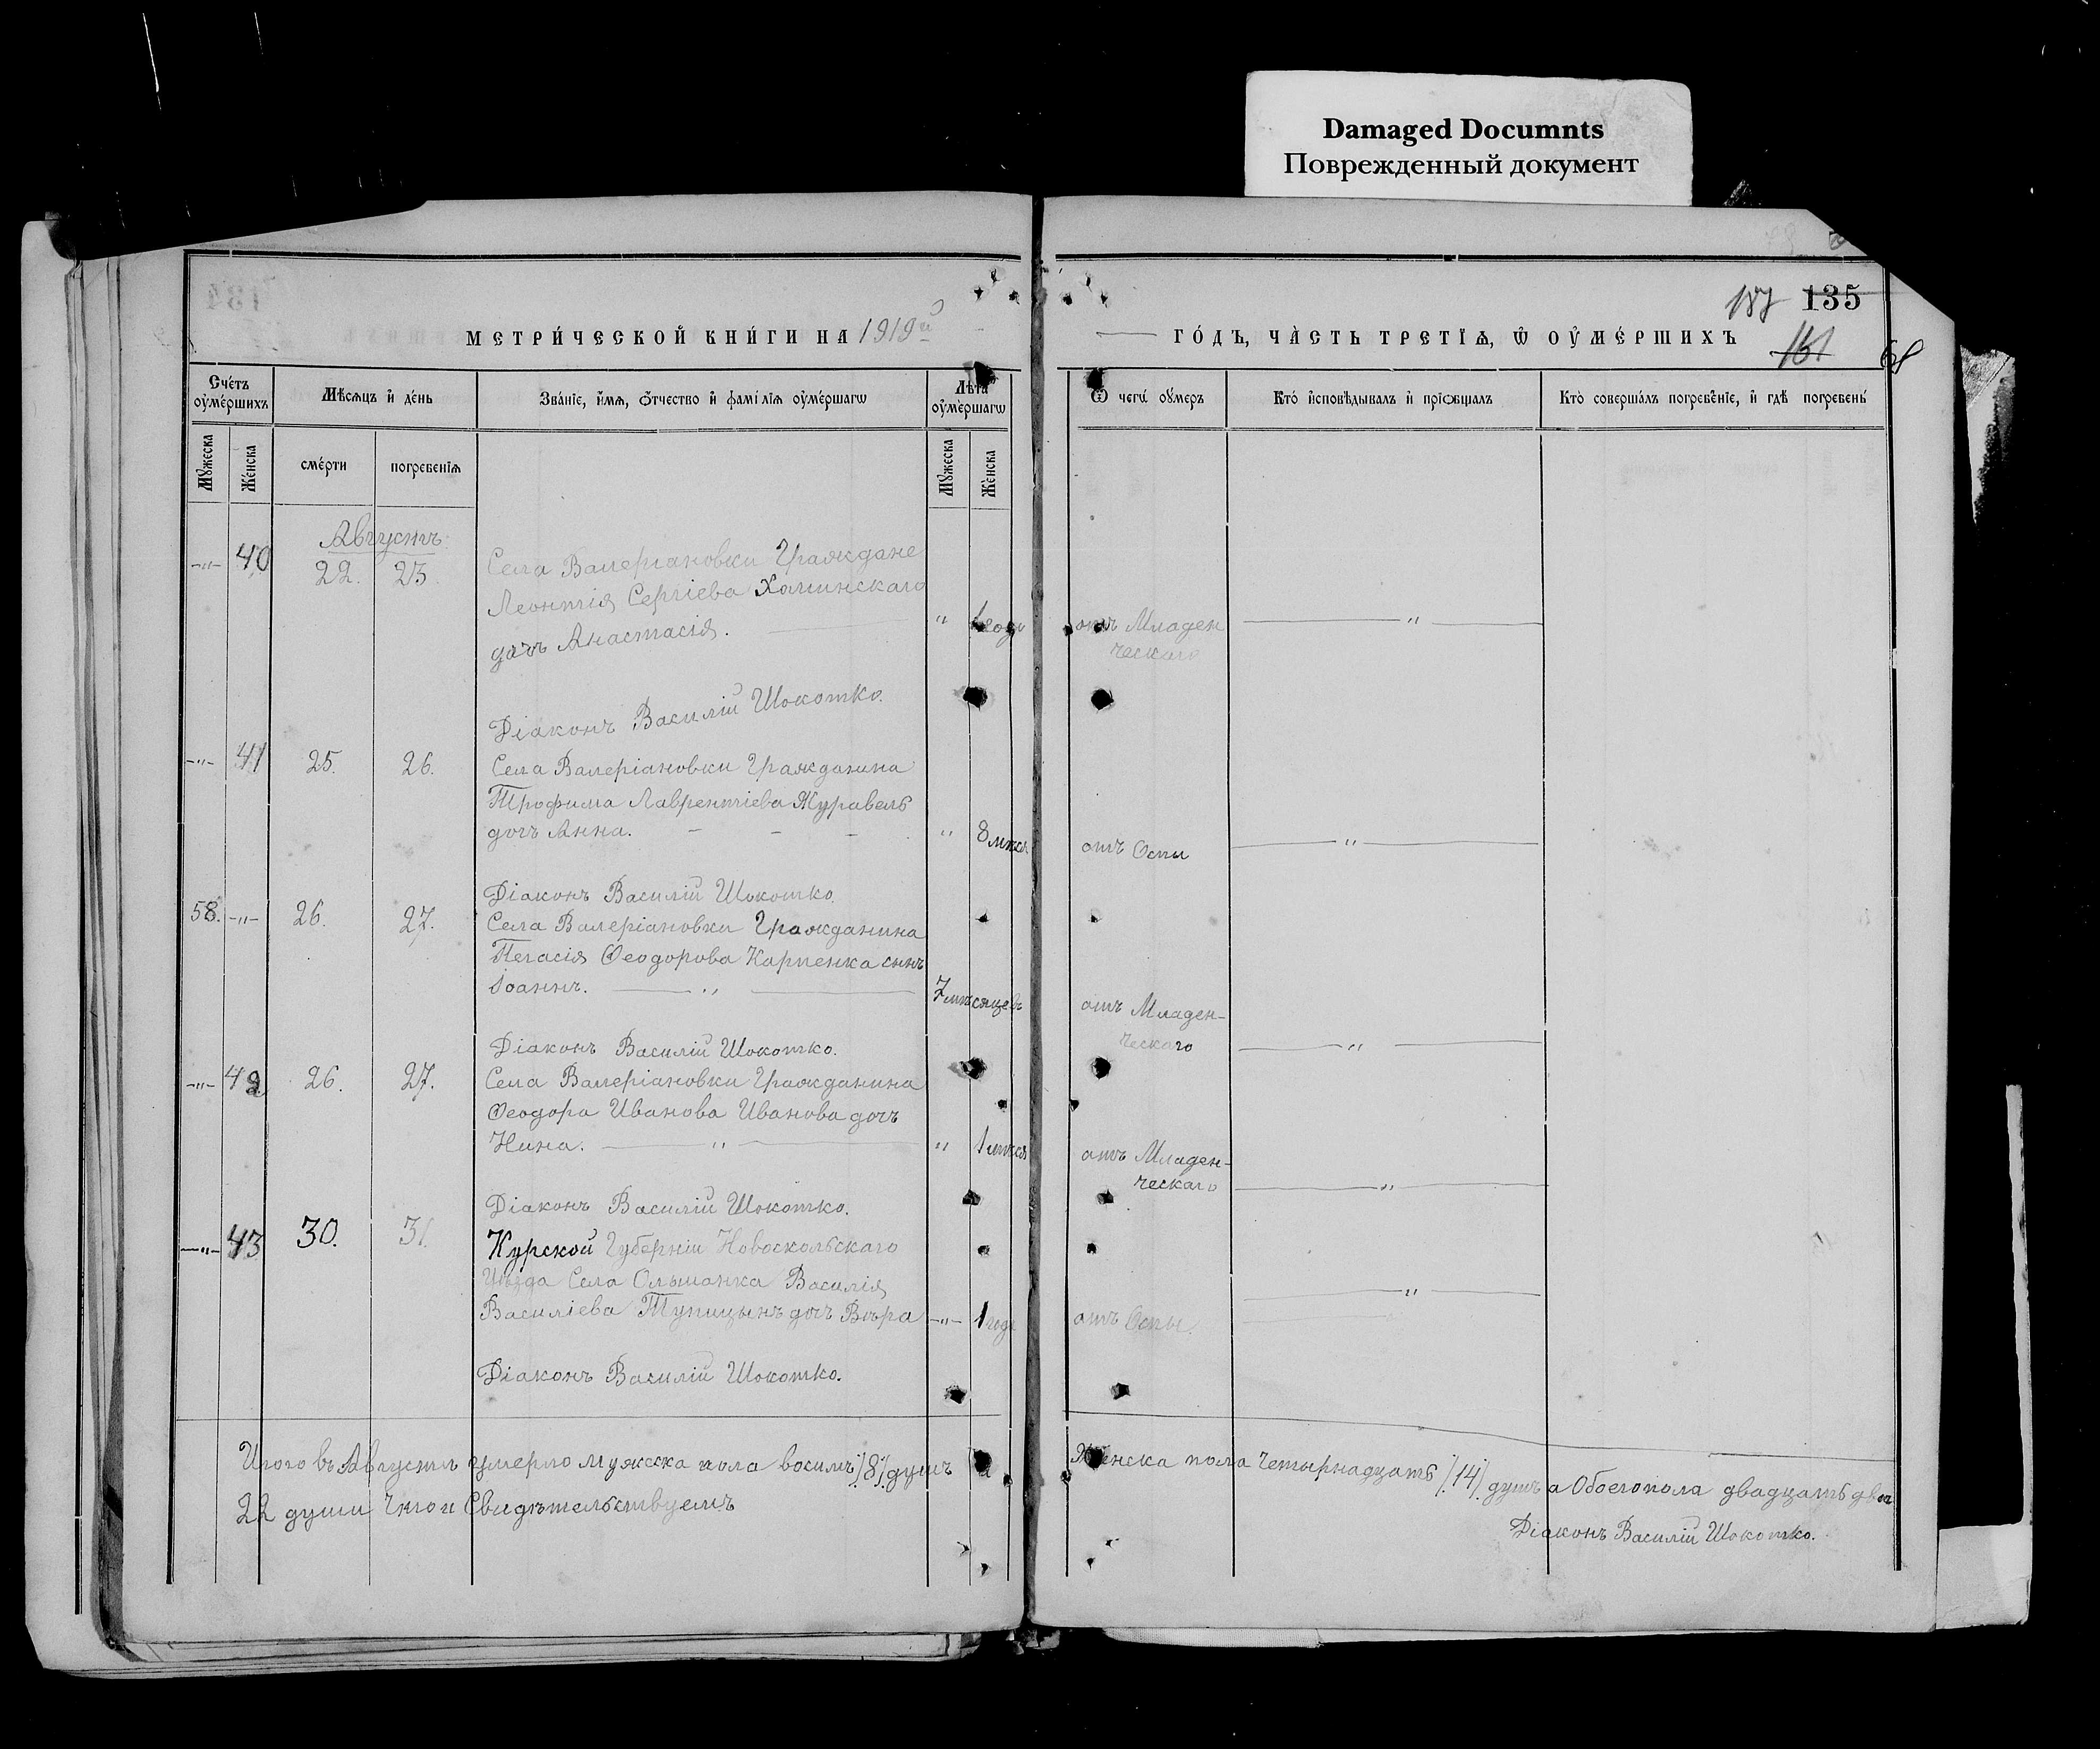 Damaged Documnts
Поврежденный документ
187 135
161
68
МЕТРИ́ЧЕСКОЙ КНИ́ГИ НА 1919й
ГО́ДЪ, ЧА̀СТЬ ТРЕТІѦ, Ѿ ОУ҆МЕ́РШИХЪ
Сче́тъ оу҆ме́ршихъ
Мѣ́сѧцъ и҆ де́нь
Зва́нїе, и҆́мѧ, ѻ҆́тчество и҆ фамі́лїѧ оу҆ме́ршагѡ
Лѣ́та оу҆ме́ршагѡ
Ѿ чегѡ̀ оу҆́меръ
Кто̀ и҆сповѣ́дывалъ и҆ прїѡбща́лъ
Кто̀ соверша́лъ погребе́нїе, и҆ гдѣ̀ погребены̀
Мꙋ́жеска
Же́нска
сме́рти
погребе́нїѧ
Мꙋ́жеска
Же́нска
Августъ
-"- 40 22. 23. Села Валеріановки Граждане
Леонтія Сергіева Хаминскаго
дочь Анастасія. " 1 годъ отъ Младен
ческаго "
Діаконъ Василій Шокотко.
-"- 41 25. 26. Села Валеріановки Гражданина
Трофима Лаврентіева Журавель
дочъ Анна. - - - " 8 мѣся отъ Оспы "
Діаконъ Василій Шокотко.
58. -"- 26. 27. Села Валеріановки Гражданина
Пегасія Ѳеодорова Карпенка сынъ
Іоаннъ. " 7 мѣсяцевъ отъ Младен-
ческаго "
Діаконъ Василій Шокотко.
-"- 42 26. 27. Села Валеріановки Гражданина
Ѳеодора Иванова Иванова дочъ
Нина. " " 1 мѣся отъ Младен-
ческаго "
Діаконъ Василій Шокотко.
-"- 43 30. 31. Курской Губерніи Новоскольскаго
Уѣзда Села Ольшанка Василія "
Василіева Тупицынъ дочъ Вѣра -"- 1 годъ отъ Оспы.
Діаконъ Василій Шокотко.
Итого въ Августѣ умерло мужеска пола восимъ /8/ душъ а Женска пола Четырнадцать /14/ душъ а Обоего пола двадцать два
22 души Что и Свидѣтельствуемъ
Діаконъ Василій Шокотко.